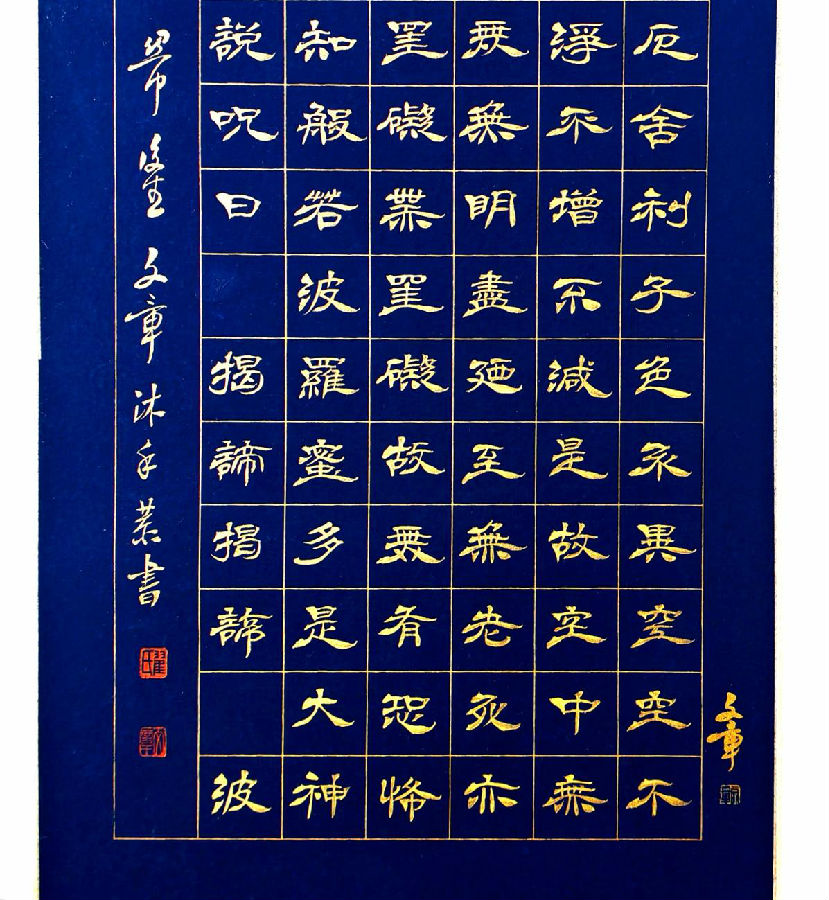 文章
厄舍利子色不異空空不
淨不增不減是故空中無
無無明盡廼至無老死亦
罣礙無罣礙故無有恐怖
知般若波羅蜜多是大神
說呪曰 揭諦揭諦 波
文章沐手恭書